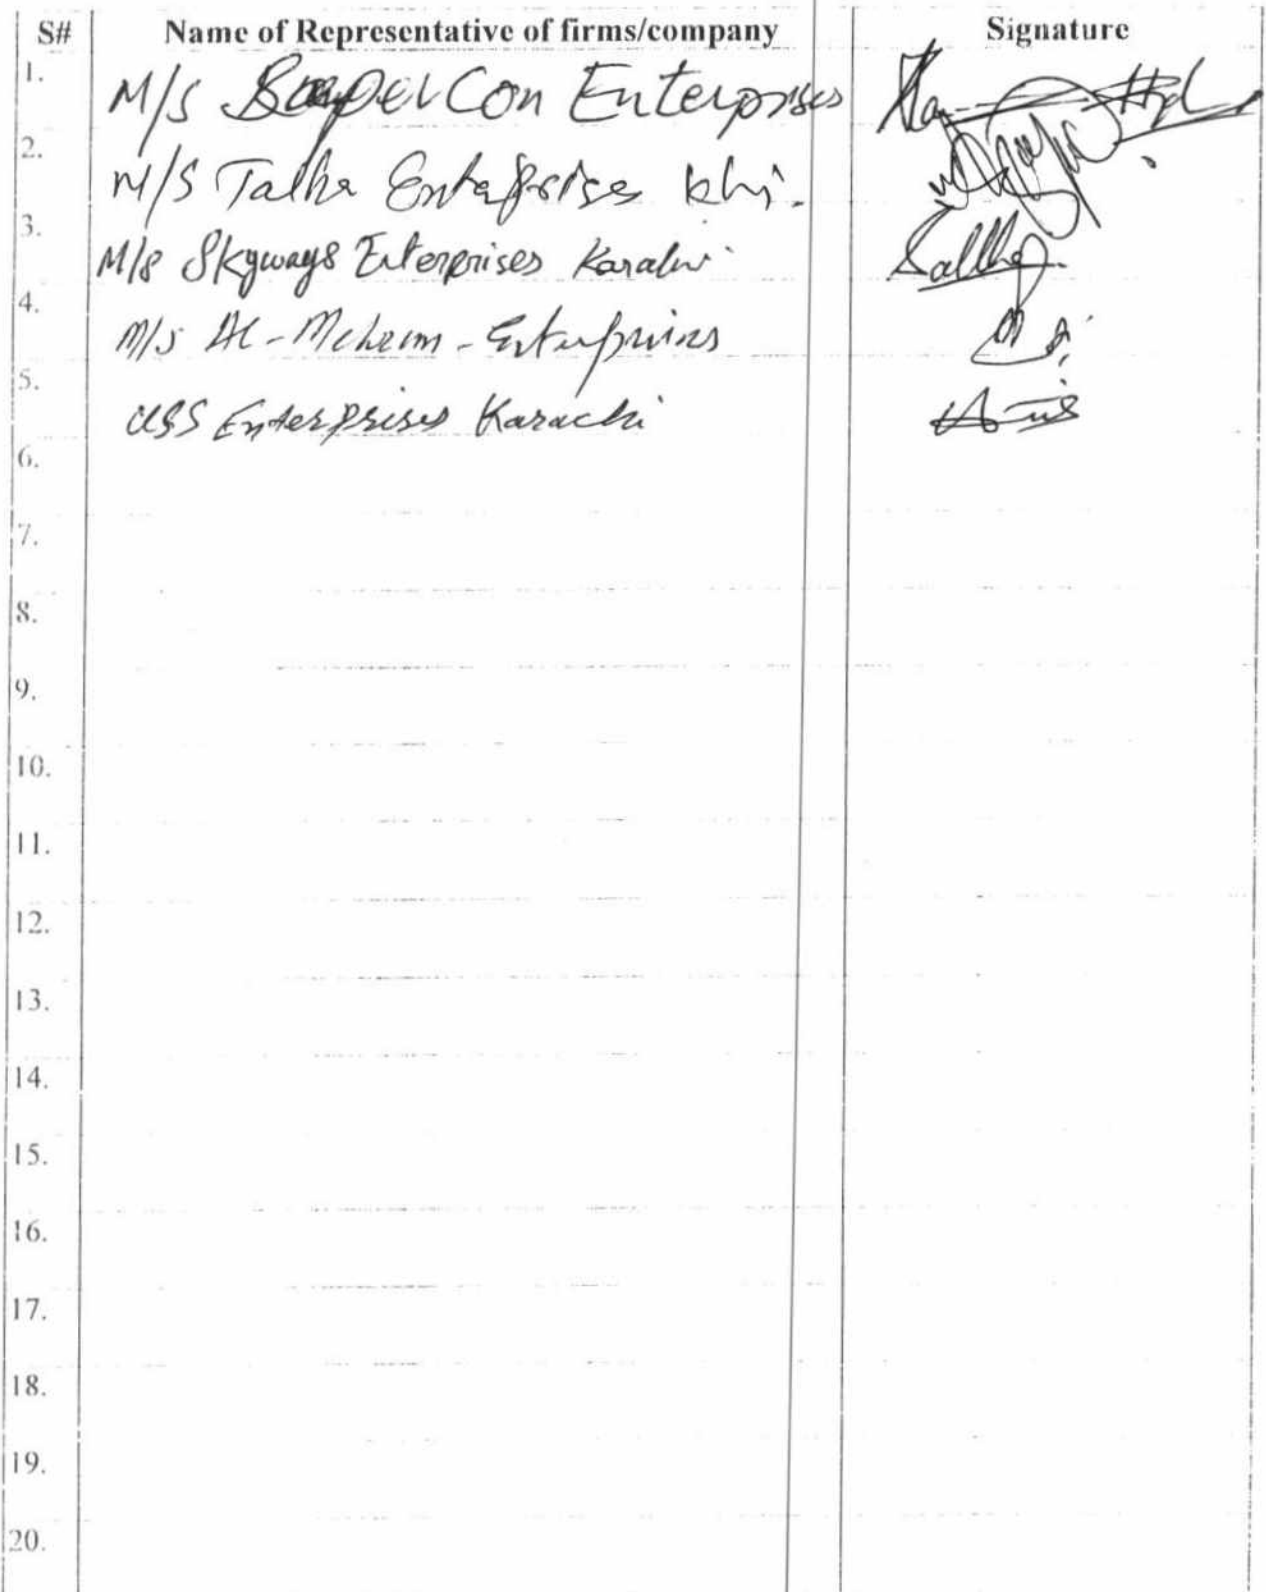 S# Name of Representative of firms/company Signature
1. M/S Super Con Enterprises
2. M/S Talha Enterprises khi.
3. M/s Skyways Enterprises Karachi
4. M/s Al- - Enterprises
5. Enterprises Karachi
6.
7.
8.
9.
10.
11.
12.
13.
14.
15.
16.
17.
18.
19.
20.